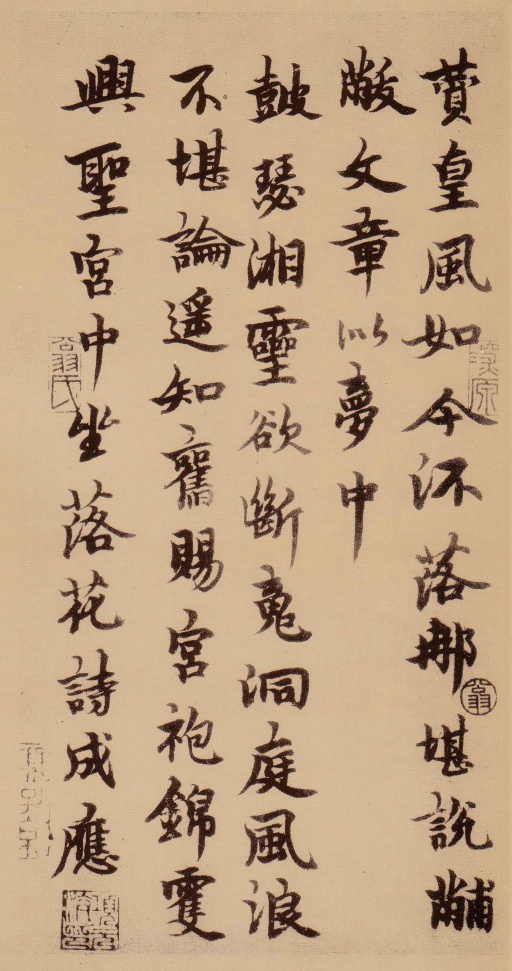 贊皇風如今流落那堪說黼
黻文章似夢中
鼓瑟湘靈欲斷魂洞庭風浪
不堪論遥知舊賜宮袍錦䨇
興聖宮中坐落花詩成應
翁
翁氏